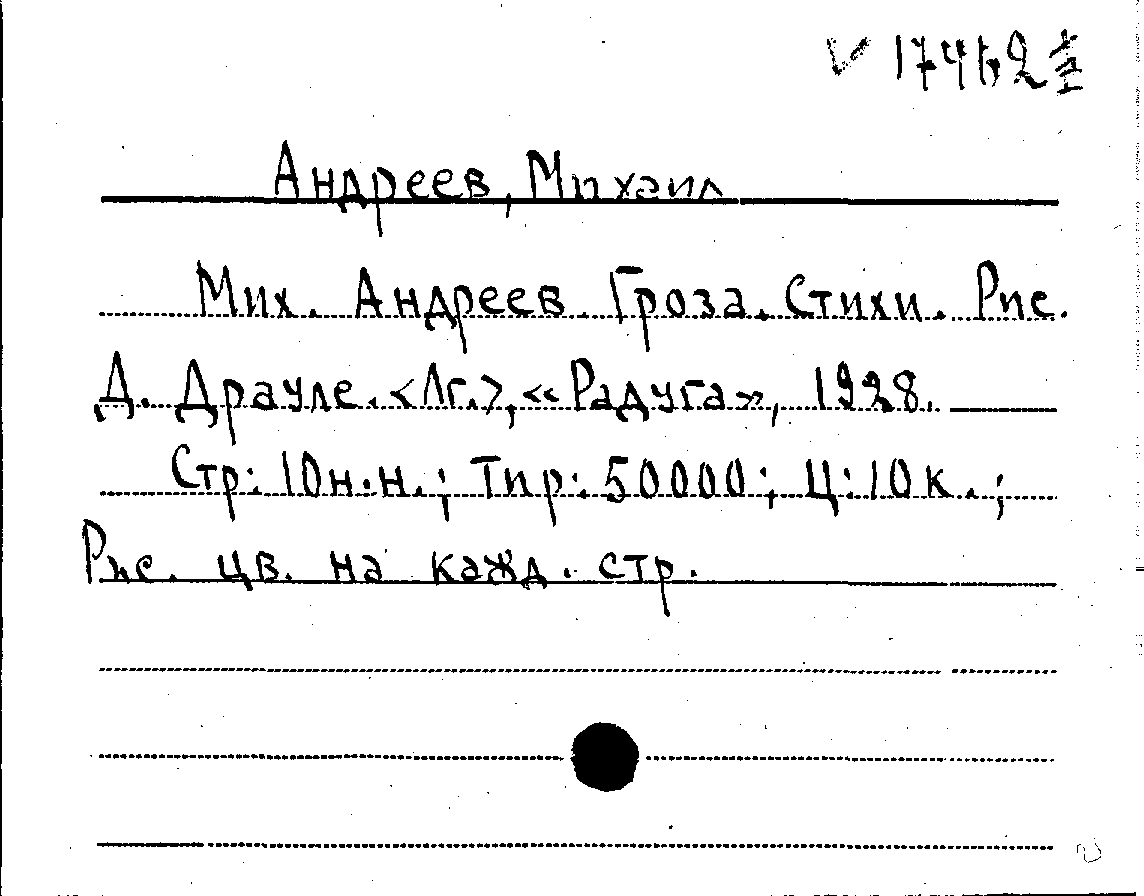 Андреев, Михаил
Мих. Андреев. Гроза. Стихи. Рис.
Д. Драуле. <Лг.>, «Радуга», 1928.
Стр: 10 н.н.; Тир: 50000; Ц: 10 к.;
Рис. цв. на кажд. стр.